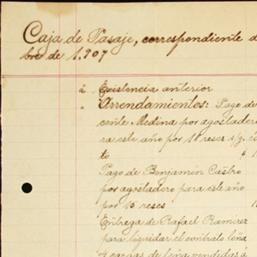 Caja de Pasaje, correspondiente a
bre de 1.907
á Existencia anterior
" Arrendamientos: Pago de
cente Medina por agostadero
ra este año por 18 reses s/g. co
to
Pago de Benjamin Castro
por agostadero para este año
por 15 reses
Entrega de Rafael Ramirez
para liquidar el contrato leña
4 cargas de leña vendidas a